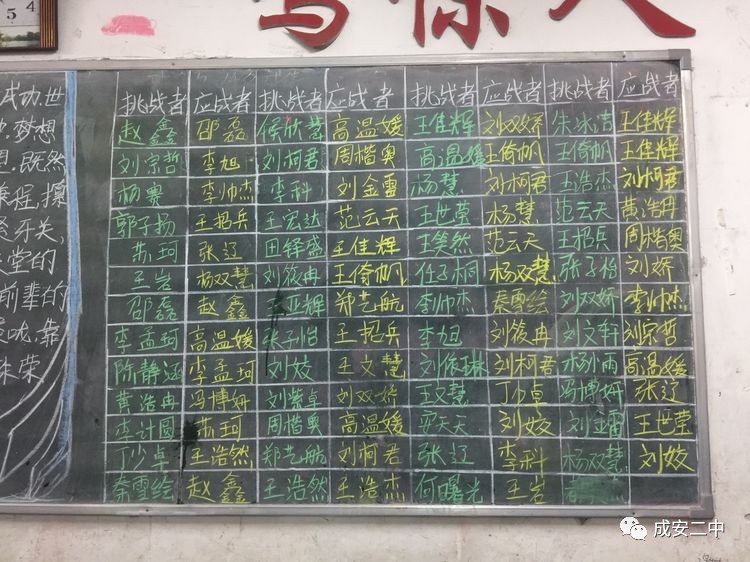 54
挑战者 应战者 挑战者 应战者 挑战者 应战者 挑战者 应战者
赵鑫 邵磊 侯欣慧 高温媛 王佳辉 刘双娇 朱洙洁 王佳辉
刘宗哲 李旭 刘柯君 周楷奥 高温媛 王倚帆 王倚帆 王佳辉
杨赛 李帅杰 李科 刘金雷 杨慧 刘柯君 王浩杰 刘柯君
郭子扬 王招兵 王宏达 范云天 王世莹 杨慧 范云天 黄浩冉
苏珂 张辽 田铎盛 王佳辉 王奕然 范云天 王招兵 周楷奥
王岩 杨双慧 刘筱冉 王倚帆 任子桐 杨双慧 张子怡 刘娇
邵磊 赵鑫 王亚辉 郑艺航 李帅杰 秦雪绘 刘双娇 李帅杰
李孟珂 高温媛 张子怡 王招兵 李旭 刘筱冉 刘文轩 刘宗哲
陈静涵 李孟珂 刘姣 王文慧 刘依琳 刘柯君 杨小雨 高温媛
黄浩冉 冯博妍 刘双娇 王文慧 丁少卓 冯博妍 张辽
李计圆 苏珂 周楷奥 高温媛 天天 刘姣 刘亚雷 王世莹
丁少卓 王浩然 郑艺航 刘柯君 张辽 李科 杨双慧 刘姣
秦雪绘 赵鑫 王浩然 王浩杰 何曙光 王岩
成功,世
梦想
既然
兼程,
牙关,
堂的
前辈的
靠
朱荣
成安二中